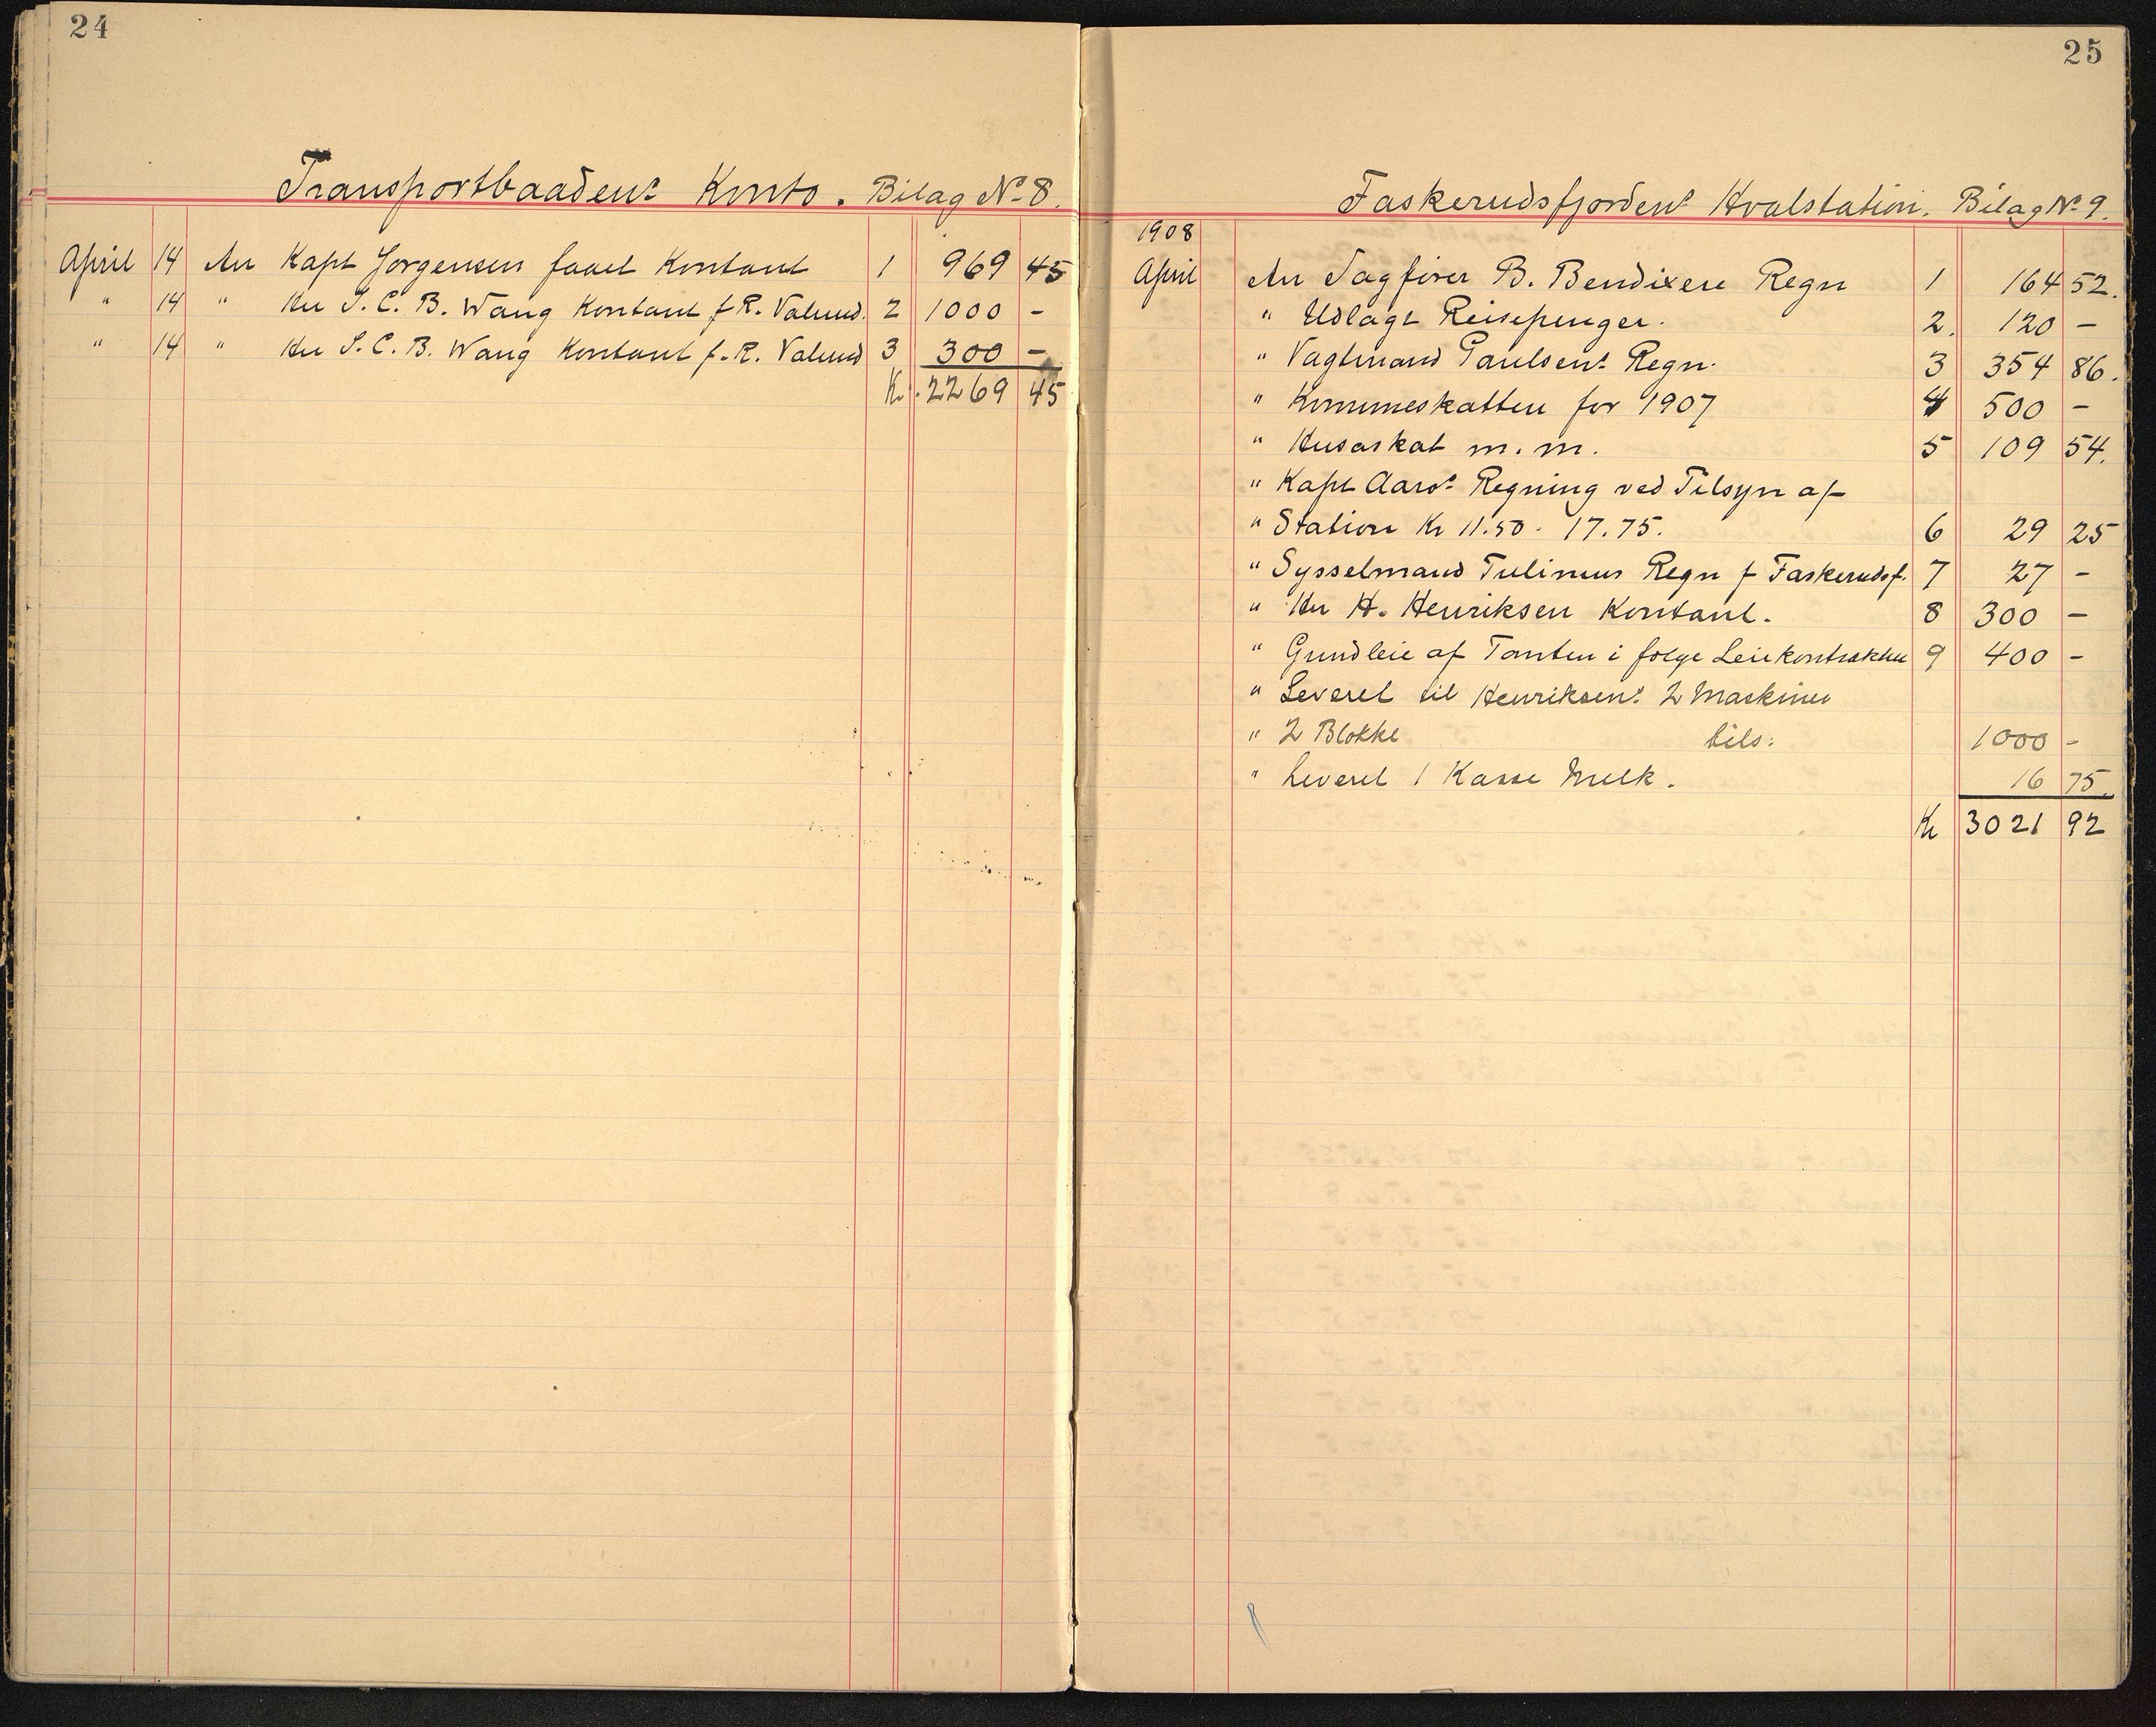 24
Transportbaadens Konto. Bilag No 8.
April 14 An Kapt Jorgensen faaet Kontant 1 969 45
" 14 " Hr I. C. B. Wang Kontant f R. Valund. 2 1000 -
" 14 " Hr I. C. B. Wang Kontant f. R. Valund 3 300 -
Kr. 2269 45
25
Faskerudsfjordens Hvalstation. Bilag No 9.
1908
April An Sagfører B. Bendixen Regn 1 164 52.
" Udlagt Reisepenger. 2. 120 -
" Vagtmand Paulsens Regn. 3 354 86.
" Kommeskatten for 1907 4 500 -
" Husaskat m. m. 5 109 54.
" Kapt Aars Regning ved Tilsyn af
" Station Kr 11.50 - 17.75. 6 29 25
" Sysselmand Tulinius Regn f Faskerudsf. 7 27 -
" Hr H. Henriksen Kontant. 8 300 -
" Grundleie af Tomten i følge Leiekontrakten 9 400 -
" Leveret til Henriksens 2 Maskiner
" 2 Blokke tils: 1000 -
" Leveret 1 Kasse Melk. 16 75.
Kr 3021 92